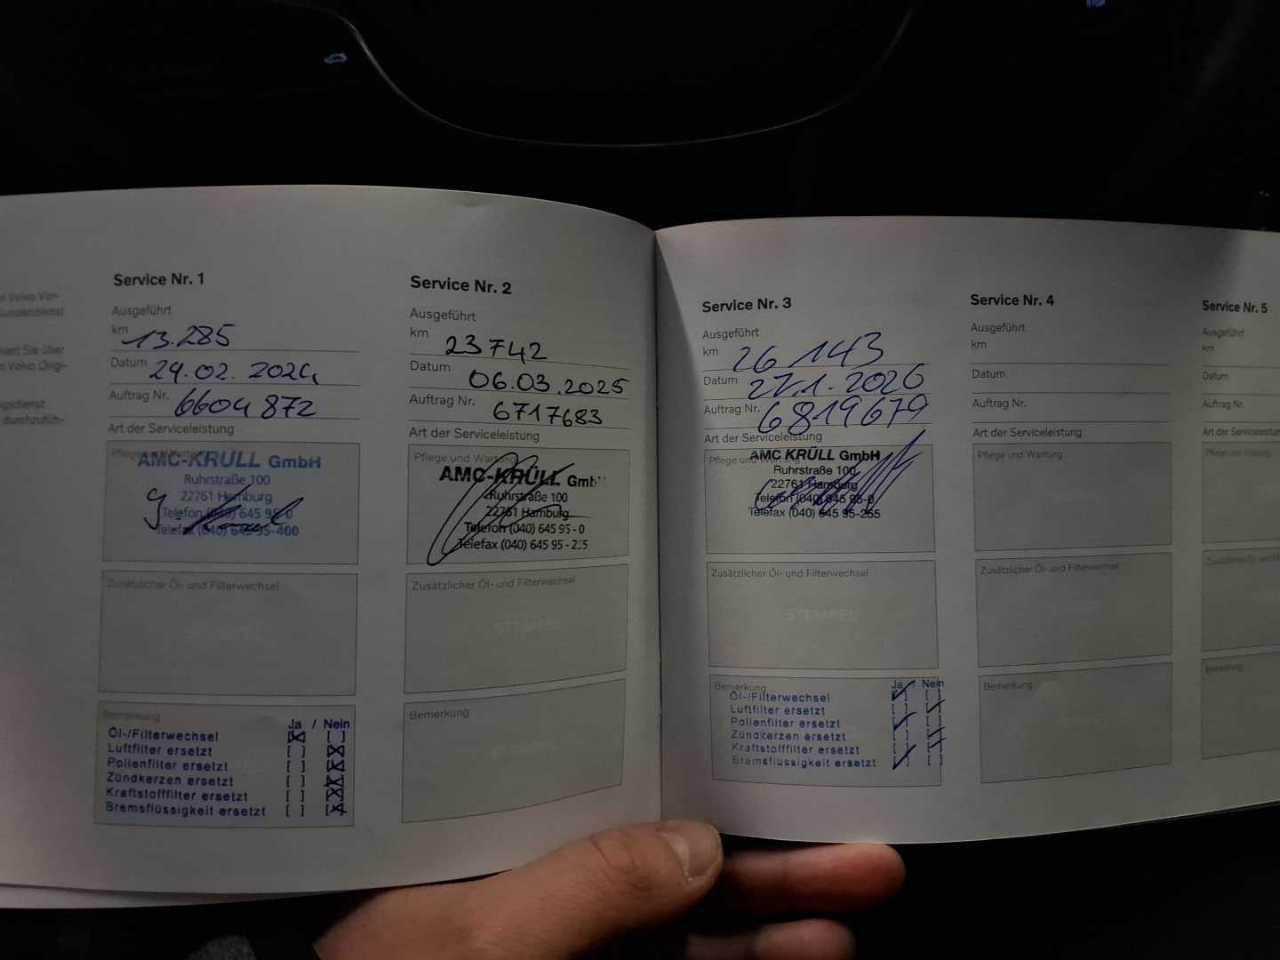 Service Nr. 1
Ausgeführt
km 13.285
Datum 29.02.2024
Auftrag Nr. 6604872
Art der Serviceleistung
Pflege und Wartung
AMC-KRÜLL GmbH
Ruhrstraße 100
22761 Hamburg
Telefon (040) 645 95-0
Telefax (040) 645 95-400
Zusätzlicher Öl- und Filterwechsel
STEMPEL
Bemerkung
Ja / Nein
Öl-/Filterwechsel [X] [ ]
Luftfilter ersetzt [ ] [X]
Pollenfilter ersetzt [ ] [X]
Zündkerzen ersetzt [ ] [X]
Kraftstofffilter ersetzt [ ] [X]
Bremsflüssigkeit ersetzt [ ] [X]
Service Nr. 2
Ausgeführt
km 23742
Datum 06.03.2025
Auftrag Nr. 6717683
Art der Serviceleistung
Pflege und Wartung
AMC-KRÜLL GmbH
Ruhrstraße 100
22761 Hamburg
Telefon (040) 645 95-0
Telefax (040) 645 95-
Zusätzlicher Öl- und Filterwechsel
Bemerkung
Service Nr. 3
Ausgeführt
km 26143
Datum 27.1.2026
Auftrag Nr. 6819679
Art der Serviceleistung
Pflege und Wartung
AMC KRÜLL GmbH
Ruhrstraße 100
22761 Hamburg
Telefon (040) 645 95-0
Telefax (040) 645 95-255
Zusätzlicher Öl- und Filterwechsel
STEMPEL
Bemerkung
Ja Nein
Öl-/Filterwechsel
Luftfilter ersetzt
Pollenfilter ersetzt
Zündkerzen ersetzt
Kraftstofffilter ersetzt
Bremsflüssigkeit ersetzt
Service Nr. 4
Ausgeführt
km
Datum
Auftrag Nr.
Art der Serviceleistung
Pflege und Wartung
Zusätzlicher Öl- und Filterwechsel
Bemerkung
Service Nr. 5
Ausgeführt
km
Datum
Auftrag Nr.
Art der
Pflege und Wartung
Bemerkung